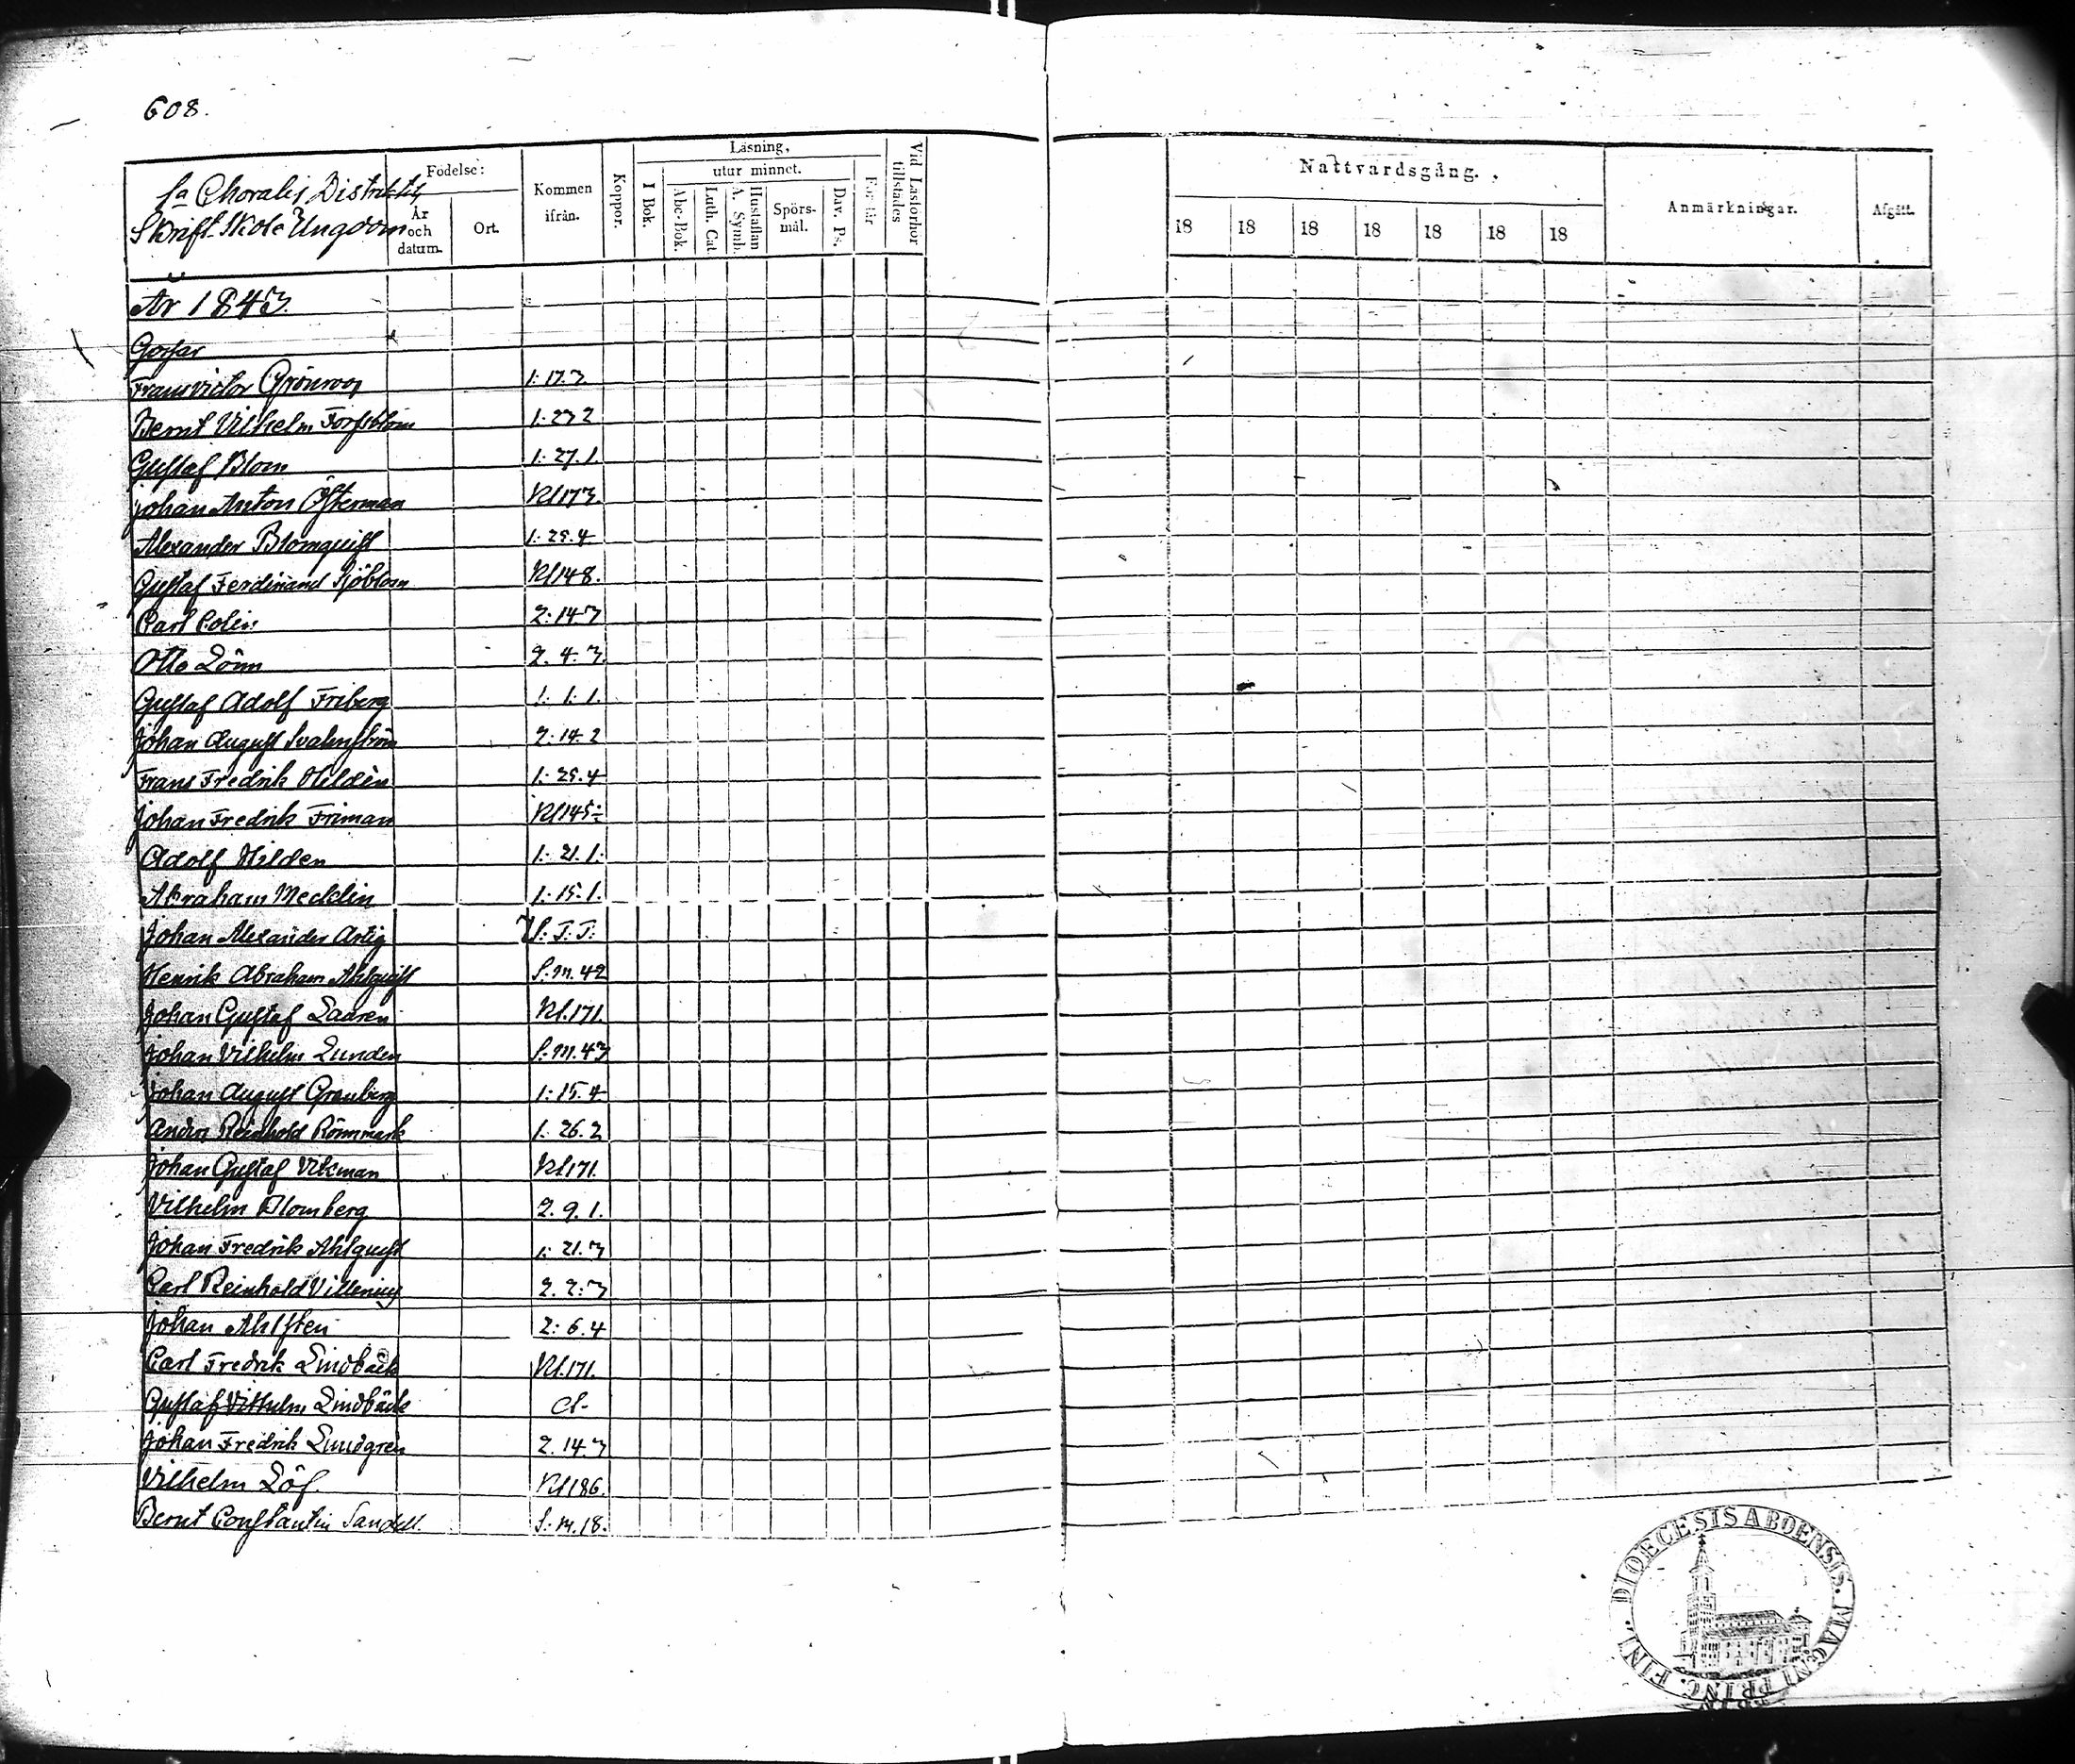 608.
Sa Choralis Distriktets
Skrift-Skole Ungdom
Födelse:
År och datum.
Ort.
Kommen ifrån.
Koppor.
Läsning,
I Bok.
utur minnet.
Abc-Bok.
Luth. Cat.
A. Symb.
Hustaflan
Spörsmål.
Dav. Ps.
Förstår
Vid Läsförhör tillstädes
Nattvardsgång.
18 18 18 18 18 18 18
Anmärkningar.
Afgått.
År 1843.
Gossar
Frans Victor Grönroos 1. 17. 3
Bernt Vilhelm Forsblom 1. 23 2
Gustaf Blom 1. 27. 1.
Johan Anton Österman Kl 173.
Alexander Blomquist 1. 25. 4
Gustaf Ferdinand Sjöblom Kl 148.
Carl Colin 2. 14 3
Otto Lönn 2. 4. 3.
Gustaf Adolf Friberg 1. 1. 1.
Johan August Svalmström 2. 14. 2
Frans Fredrik Hildén 1. 25. 4
Johan Fredrik Friman Kl 145
Adolf Hilden 1. 21. 1.
Abraham Mecklin 1. 15. 1.
Johan Alexander Artig S. T. T.
Henrik Abraham Ahlquist S. M. 42
Johan Gustaf Laaren Kl. 171.
Johan Vilhelm Lunden S. M. 43
Johan August Granberg 1. 15. 4
Anders Reinhold Rönnmark 1. 26. 2
Johan Gustaf Vikman Kl 171.
Vilhelm Blomberg 2. 9. 1.
Johan Fredrik Ahlquist 1. 21. 3
Carl Reinhold Villenius 2. 2. 3
Johan Ahlsten 2. 6. 4
Carl Fredrik Lindbäck Kl. 171.
Gustaf Vilhelm Lindbäck d-
Johan Fredrik Lindgren 2. 14. 3
Vilhelm Löf. Kl 186.
Bernt Constantin Sandell. S. M. 18.
DIOECESIS ABOENSIS. MAGNI PRINC. FINL.